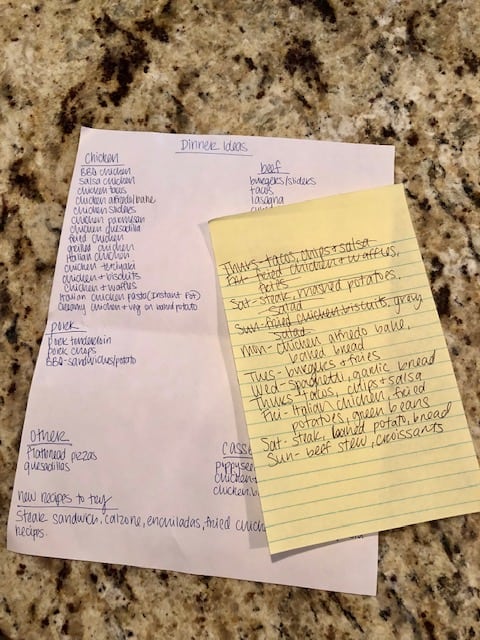 Dinner Ideas
Chicken
BBQ chicken
salsa chicken
chicken tacos
chicken alfredo/bake
chicken sliders
chicken parmesan
chicken quesadilla
fried chicken
grilled chicken
italian chicken
chicken teriyaki
chicken + biscuits
chicken + waffles
Italian chicken pasta (Instant Pot)
creamy chicken + veg on baked potato
beef
burgers/sliders
tacos
lasagna
pork
pork tenderloin
pork chops
BBQ-sandwiches/potato
other
flatbread pizzas
quesadillas
casse
poppysee
chicken
chicken
new recipes to try
Steak sandwich, calzone, enchiladas, fried chick
recipes
Thurs-tacos, chips + salsa
Fri-fried chicken + waffles,
fries
Sat-steak, mashed potatoes,
salad
Sun-fried chicken biscuits, gravy
salad
Mon-chicken alfredo bake,
baked bread
Tues-burgers + fries
Wed-spaghetti, garlic bread
Thurs-tacos, chips + salsa
Fri-Italian chicken, fried
potatoes, green beans
Sat-steak, baked potato, bread
Sun-beef stew, croissants